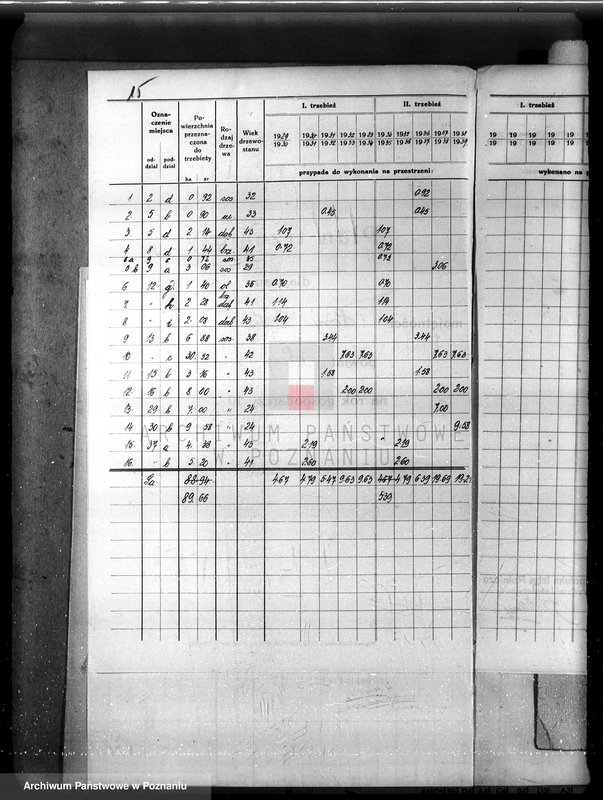 15
Oznaczenie miejsca
Powierzchnia przeznaczona do trzebieży
Rodzaj drzewa
Wiek drzewostanu
I. trzebież
II. trzebież
I. trzebież
oddział pododdział
ha ar
1929 1930 1931 1932 1933 1934 1935 1936 1937 1938
1930 1931 1932 1933 1934 1935 1936 1937 1938 1939
19 19 19 19 19
19 19 19 19 19
przypada do wykonania na przestrzeni:
wykonano na
1 2 d 0 92 sos. 32 0.92
2 5 b 0 90 33 0.45 0.45
3 5 d 2 14 dąb 43 1.07 1.07
4 8 d 1 44 brz. 41 0.72 0.72
5a 9 c 0 72 sos. 0.73
5b 9 a 3 06 sos 29 3.06
6 12 g 1 40 ol 36 0.70 0.70
7 " h 2 28 brz dąb 41 1.14 1.14
8 - i 2.08 dąb 43 1.04 1.04
9 13 b 6 88 sos. 38 3.44 3.44
10 - c 30.52 " 42 7.63 7.63 7.63 7.63
11 15 b 3 16 " 43 1.58 1.58
12 16 b 8 00 " 43 2.00 2.00 2.00 2.00
13 29 b 7.00 " 24 7.00
14 30 b 9 58 " 24 9.58
15 37 a 4.38 " 43 2.19 2.19
16 - b 5.20 " 41 2.60 2.60
88.94 4.67 4.79 5.47 9.63 9.63 4.67 4.79 6.39 19.69 19.2
89.66 5.39
ARCHIWUM PAŃSTWOWE
W POZNANIU
Archiwum Państwowe w Poznaniu